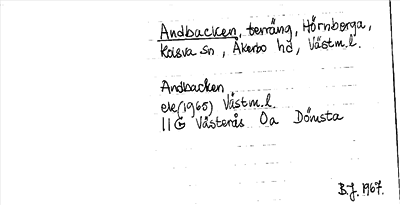 Andbacken, terräng, Hörnborga,
Kolsva sn, Åkerbo hd, Västm.l.
Andbacken
ek (1965) Västm.l.
11G Västerås 0a Dömsta
B.J. 1967.